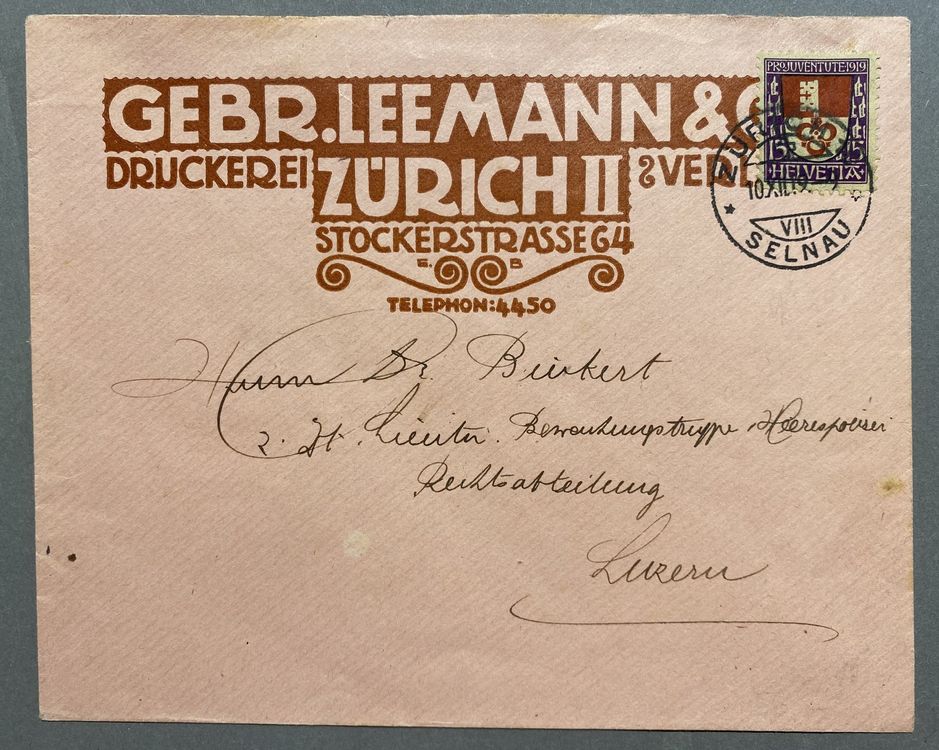 GEBR. LEEMANN & C
DRUCKEREI ZÜRICH II & VERL
STOCKERSTRASSE 64
E. B
TELEPHON: 4450
PRO JUVENTUTE 1919
15 15
HELVETIA
ZÜRICH
10.XII.19
VIII
SELNAU
Herrn Dr. Burkert
z. Zt. Bewachungstruppe, Heerespolizei
Rechtsabteilung
Luzern